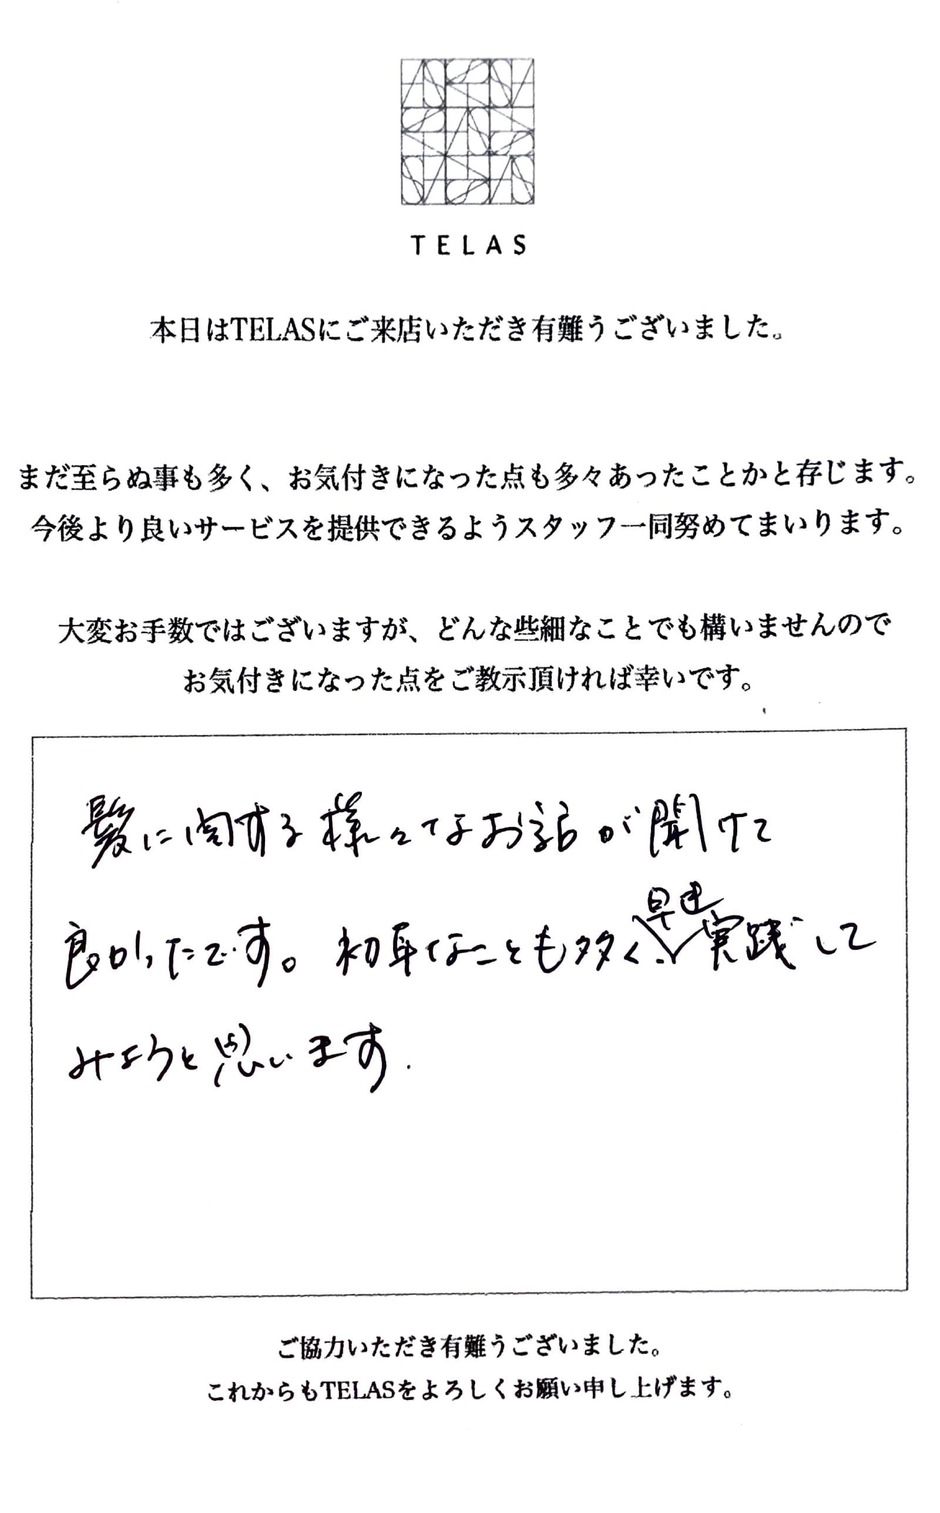 TELAS
本日はTELASにご来店いただき有難うございました。
まだ至らぬ事も多く、お気付きになった点も多々あったことかと存じます。
今後より良いサービスを提供できるようスタッフ一同努めてまいります。
大変お手数ではございますが、どんな些細なことでも構いませんので
お気付きになった点をご教示頂ければ幸いです。
髪に関する様々なお話が聞けて
良かったです。初耳なことも多く、早速実践して
みようと思います.
ご協力いただき有難うございました。
これからもTELASをよろしくお願い申し上げます。